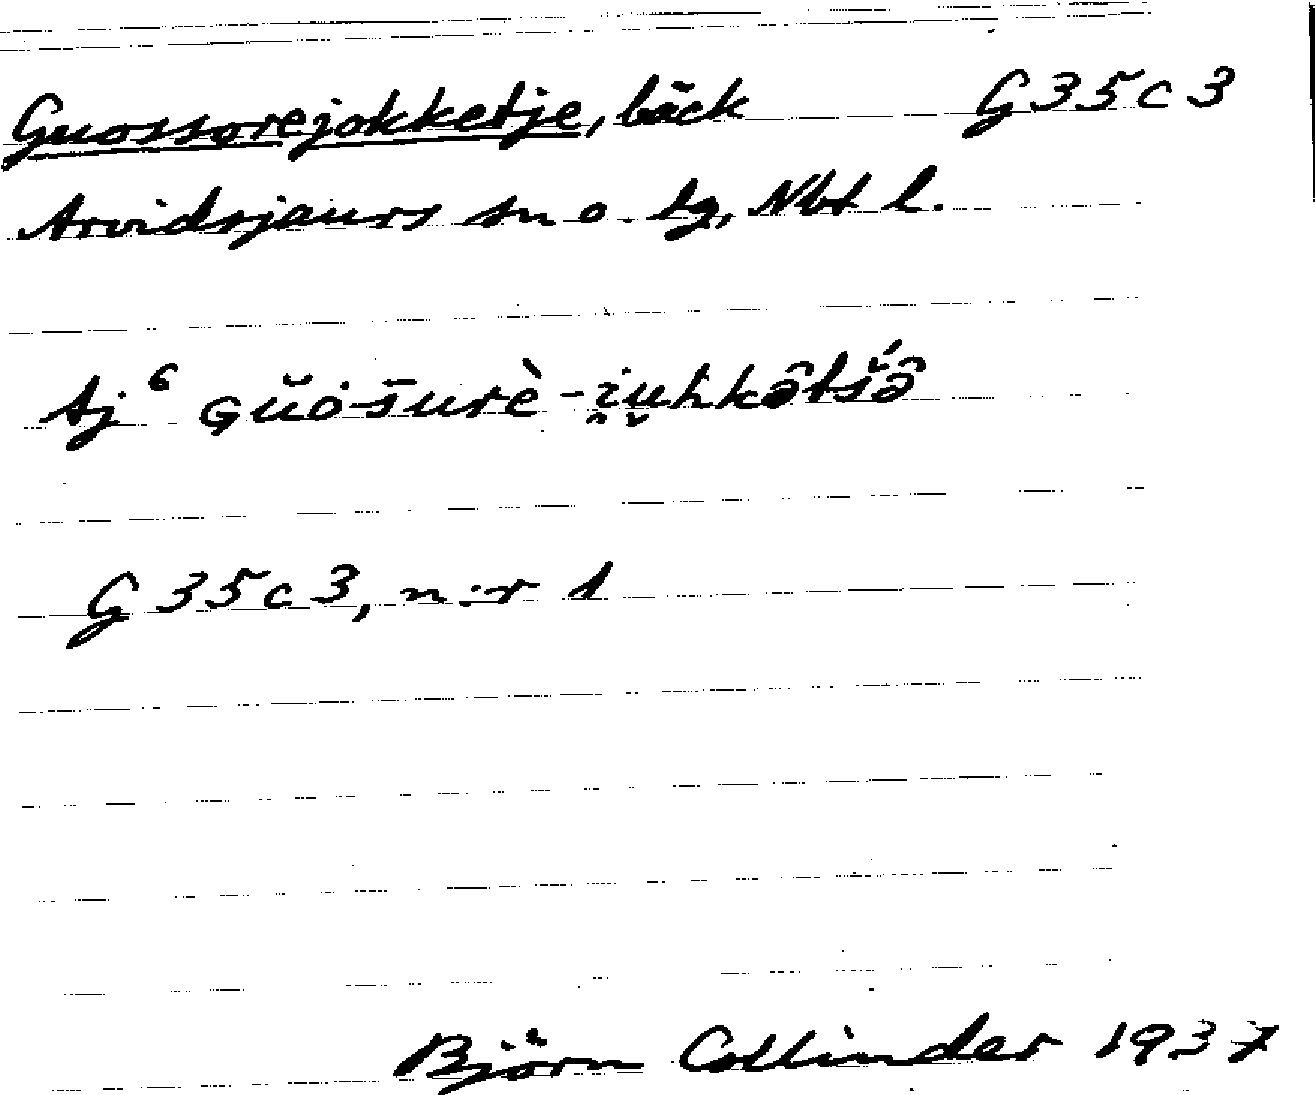 Guossorejokketje, bäck G35c3
Arvidsjaurs sn o. tg, Nbt l.
Aj⁶ Gŭo·s̄urè-i̯u̬hkə̑tš́ə̑
G 35 c 3, n:r 1
Björn Collinder 1937